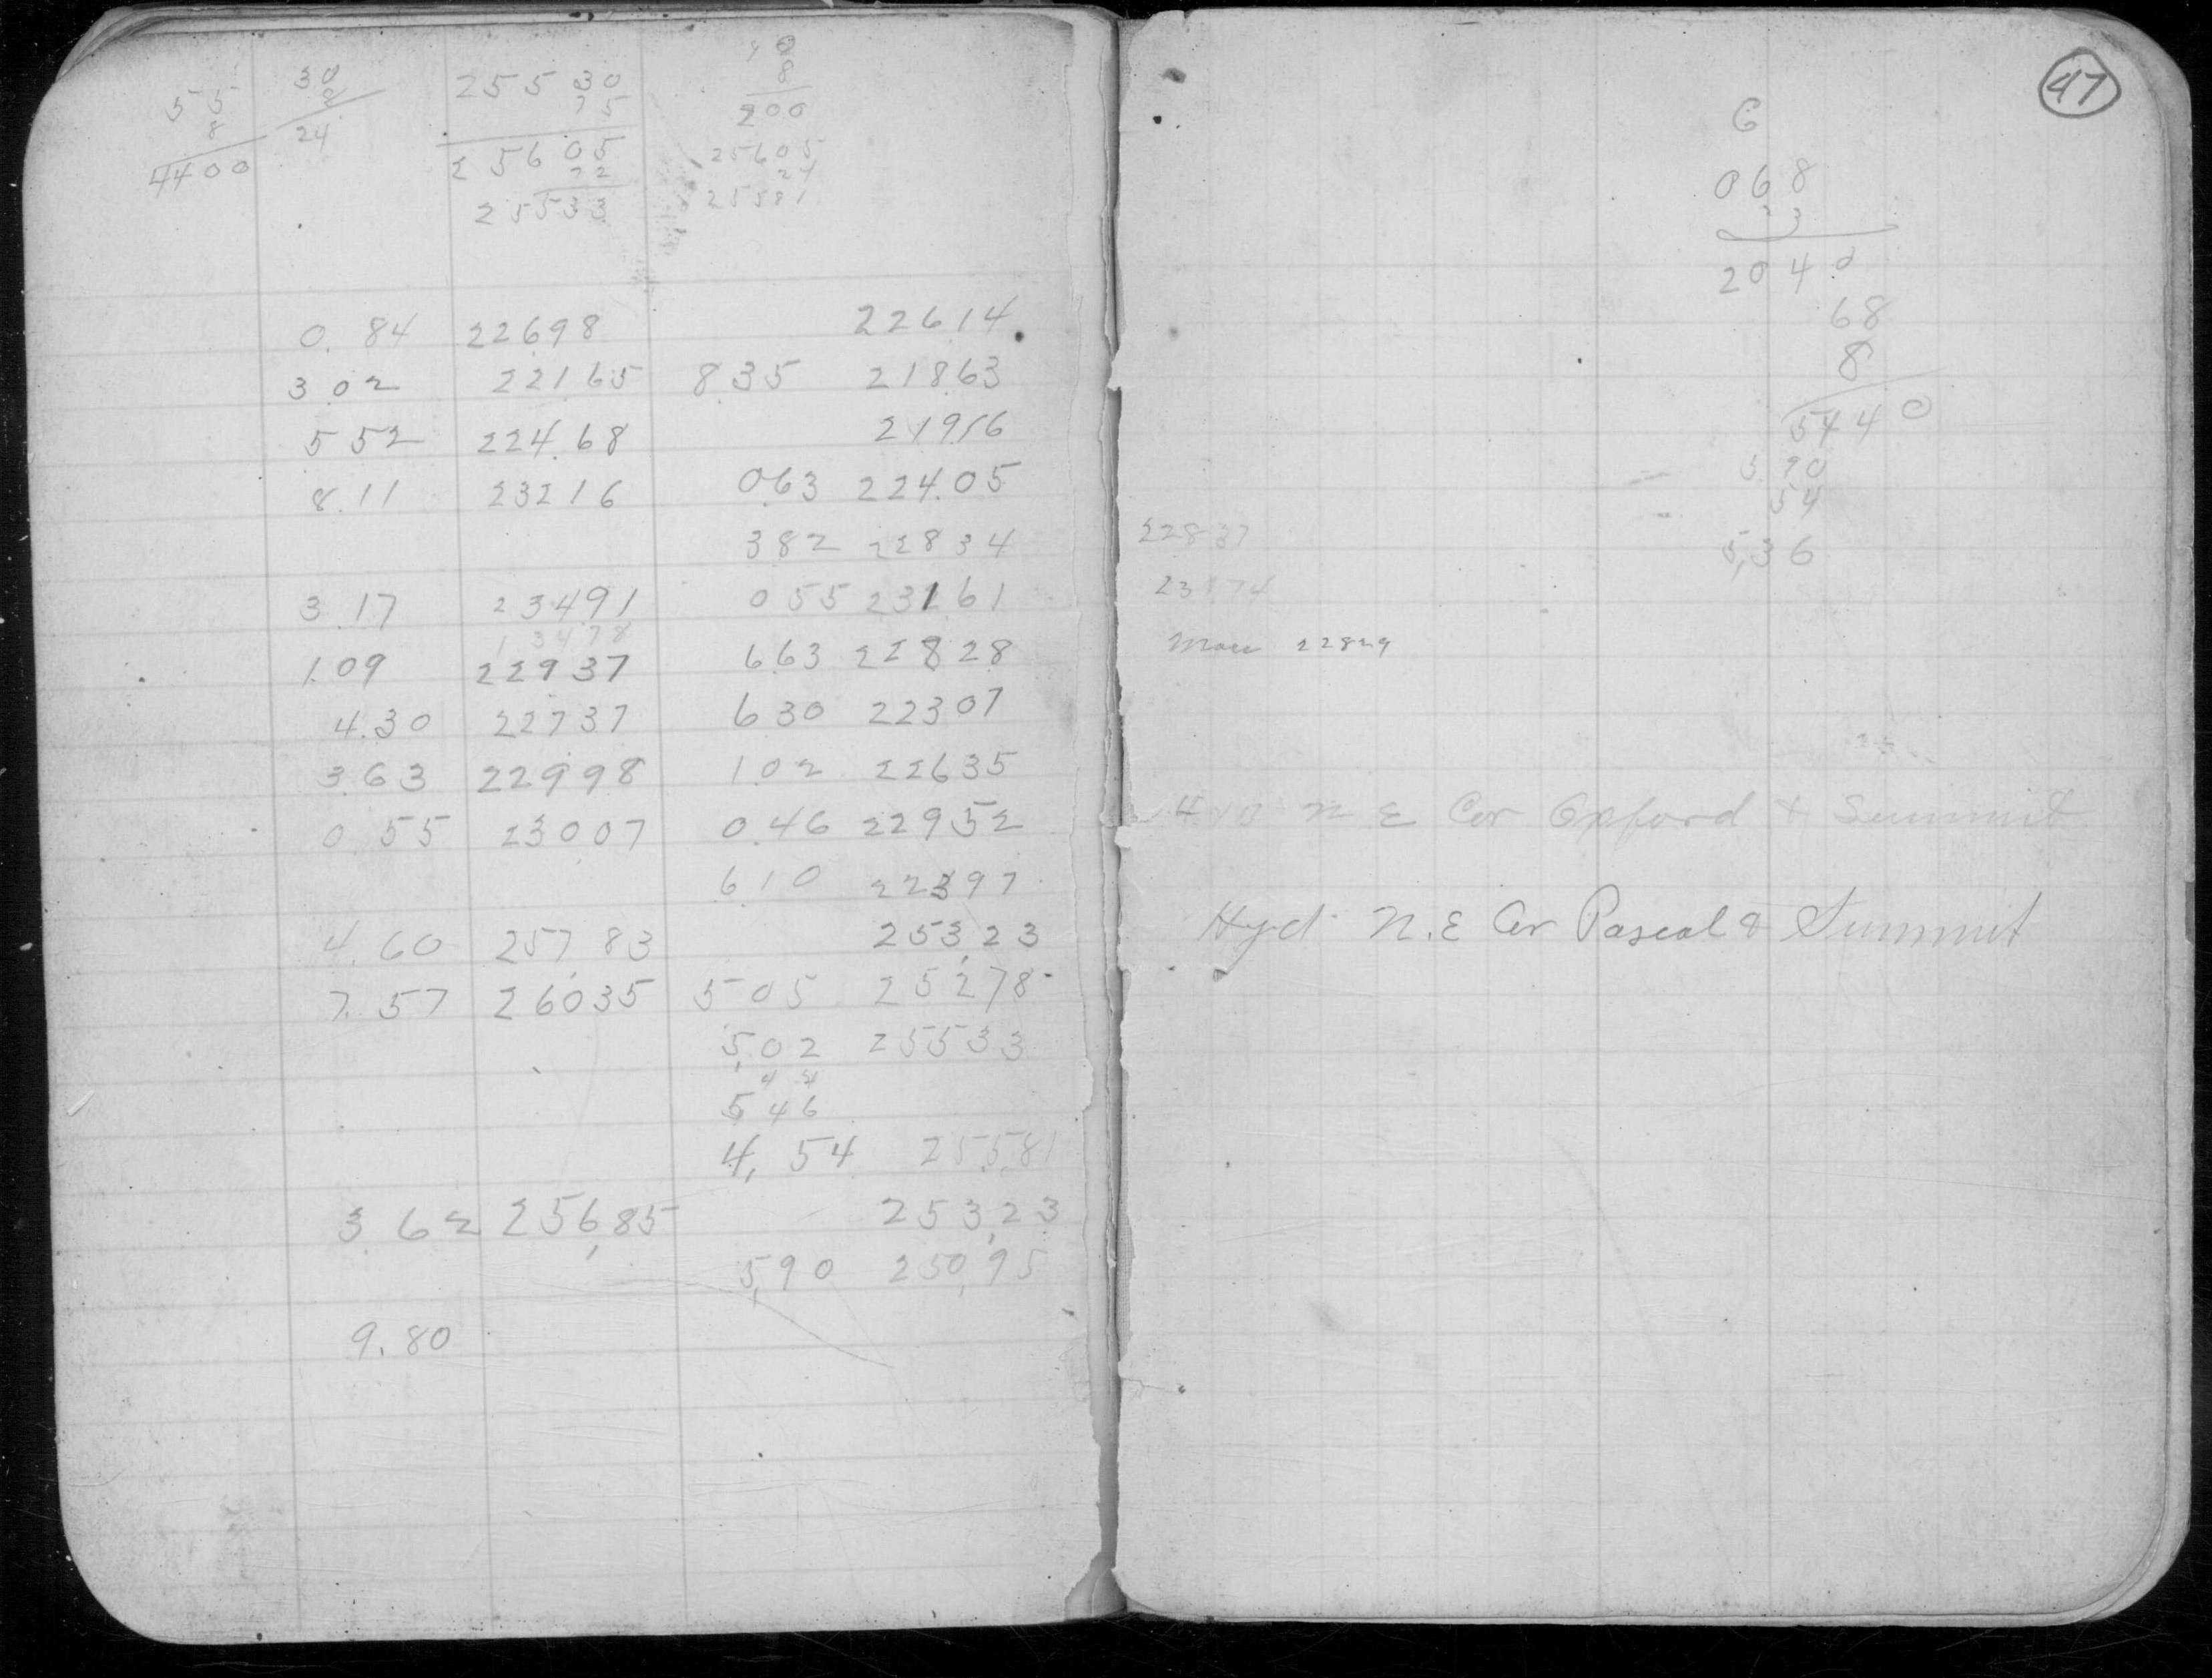 55 30 25530
8 8 75 8
4400 24 25605 200
72 25605
25533 24
25581
0.84 22698 22614
3.02 22165 8.35 21863
5 52 224.68 21916
8.11 23216 0.63 224.05
3 82 22834
3.17 23491 0 55 23161
13478
1.09 22937 6.63 22828
4.30 22737 6 30 22307
3.63 22998 1.02 22635
0.55 23007 0.46 22952
6 10 22397
4.60 257,83 253,23
7.57 26035 5 05 25278
5,02 25533
5,46
4,54 25581
3.62 256,85 253,23
5,90 250,95
9.80
47
6
068
3
2040
68
8
5440
5.90
54
5,36
22837
22829
N E Cor Oxford & Summit
Hyd. N.E Cor Pascal & Summit